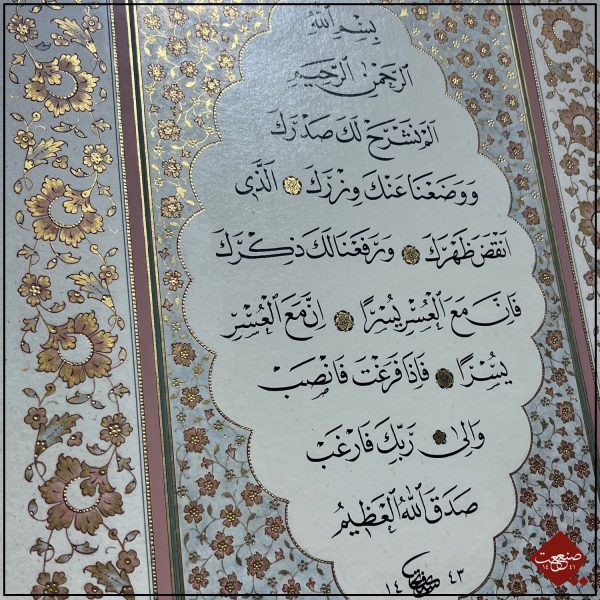 بِسْمِ اللهِ
الرَّحْمٰنِ الرَّحِيمِ
اَلَمْ نَشْرَحْ لَكَ صَدْرَكَ
وَوَضَعْنَا عَنْكَ وِزْرَكَ الَّذِى
اَنْقَضَ ظَهْرَكَ وَرَفَعْنَا لَكَ ذِكْرَكَ
فَاِنَّ مَعَ الْعُسْرِ يُسْرًا اِنَّ مَعَ الْعُسْرِ
يُسْرًا فَاِذَا فَرَغْتَ فَانْصَبْ
وَاِلٰى رَبِّكَ فَارْغَبْ
صَدَقَ اللهُ الْعَظِيمُ
١٤ ٤٣
صنعت